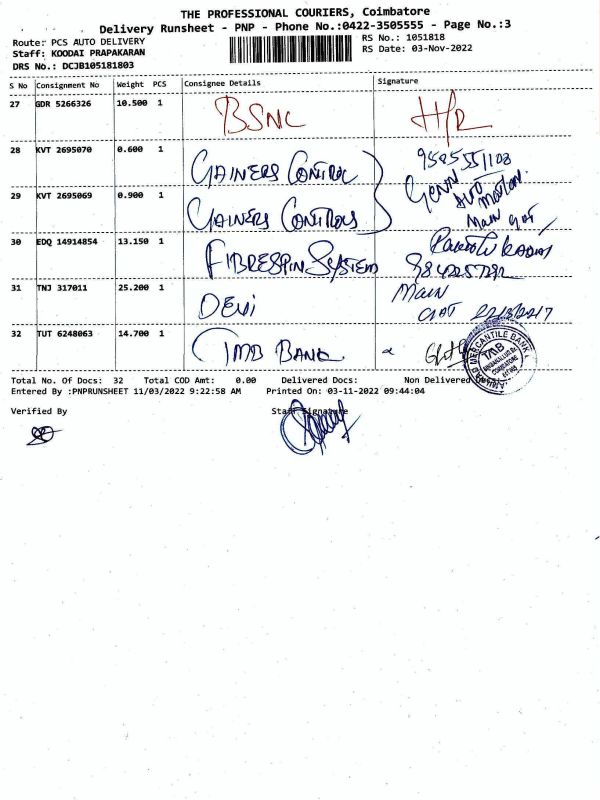 THE PROFESSIONAL COURIERS, Coimbatore
Delivery Runsheet - PNP - Phone No.:0422-3505555 - Page No.:3
Route: PCS AUTO DELIVERY
RS No.: 1051818
Staff: KOODAI PRAPAKARAN
RS Date: 03-Nov-2022
DRS No.: DCJB105181803
S No Consignment No Weight PCS Consignee Details Signature
27 GDR 5266326 10.500 1 BSNL H/R
28 KVT 2695070 0.600 1 GAINERS CONTROL 9595551108
29 KVT 2695069 0.900 1 GAINERS CONTROLS
Main gat
30 EDQ 14914854 13.150 1 FIBRESPIN SYSTEM
31 TNJ 317011 25.200 1 DEVI Main
32 TUT 6248063 14.700 1 TMB BANK
MERCANTILE BANK
TMB
COIMBATORE
Total No. Of Docs: 32 Total COD Amt: 0.00 Delivered Docs: Non Delivered Docs:
Entered By :PNPRUNSHEET 11/03/2022 9:22:58 AM Printed On: 03-11-2022 09:44:04
Verified By Staff Signature